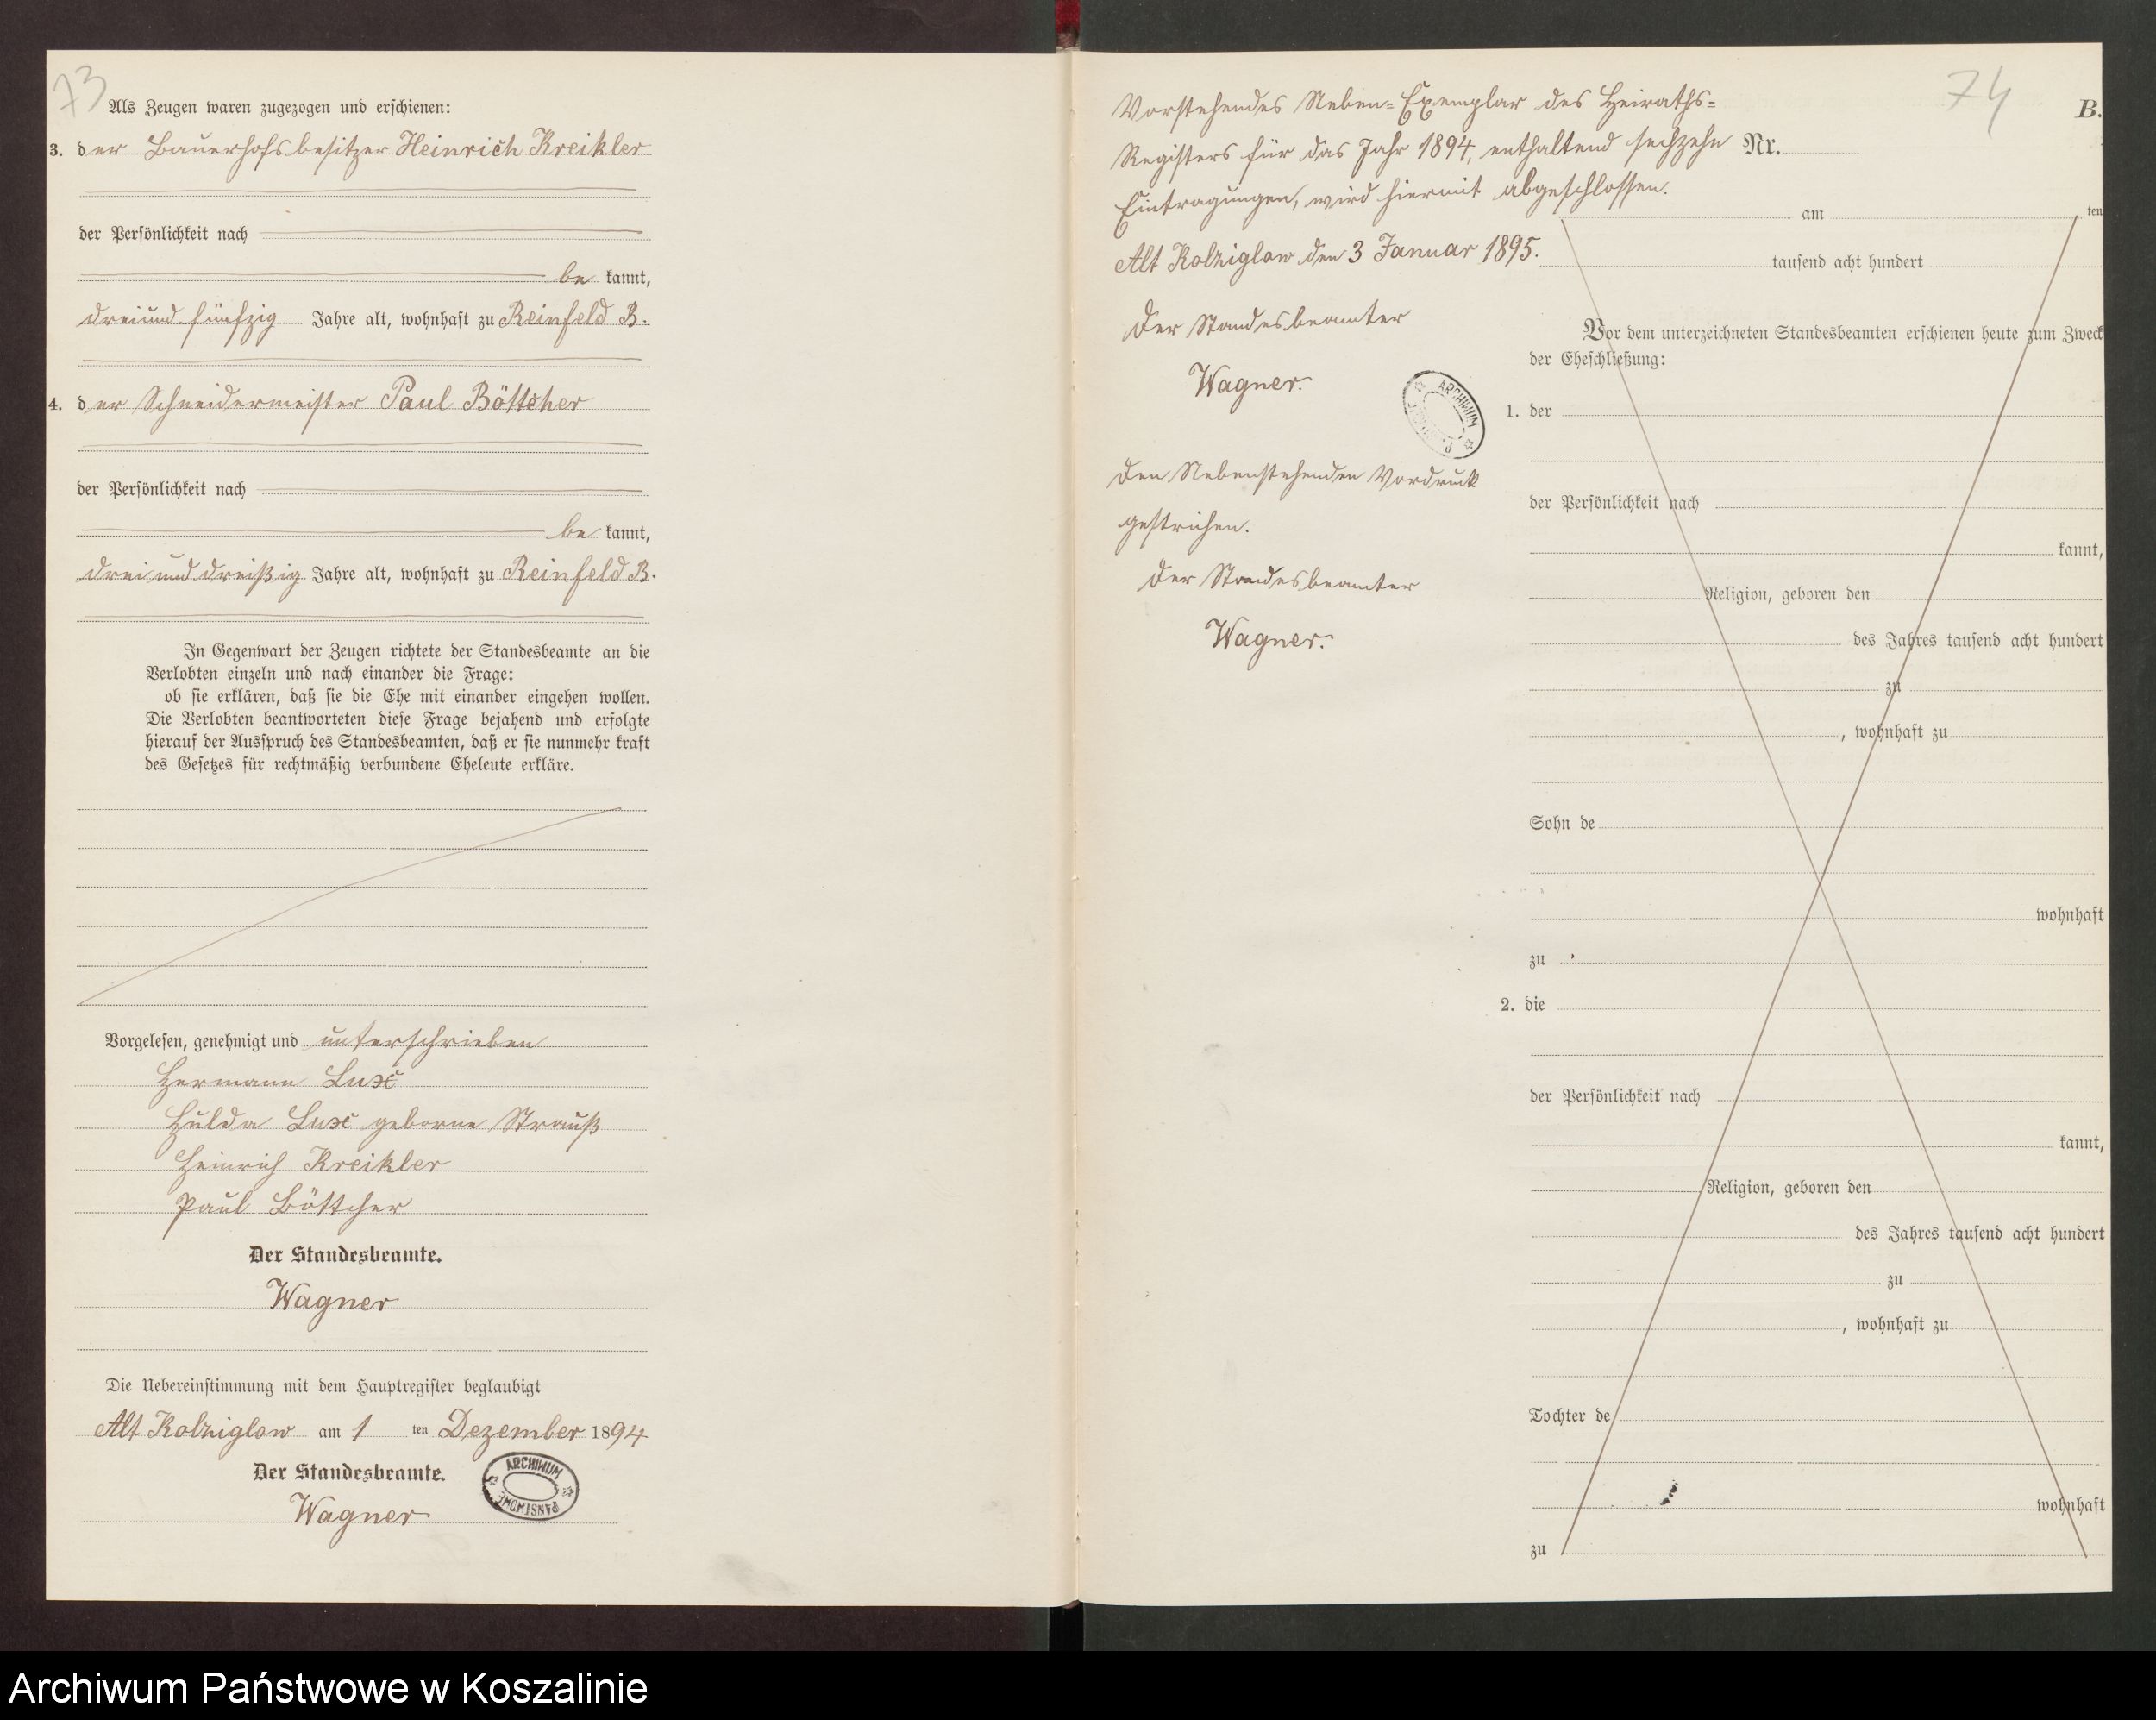 73
Als Zeugen waren zugezogen und erschienen:
3. der Bauerhofsbesitzer Heinrich Kreikler
der Persönlichkeit nach
be kannt,
dreiund fünfzig Jahre alt, wohnhaft zu Reinfeld B.
4. der Schneidermeister Paul Böttcher
der Persönlichkeit nach
be kannt,
drei und dreißig Jahre alt, wohnhaft zu Reinfeld B.
In Gegenwart der Zeugen richtete der Standesbeamte an die
Verlobten einzeln und nach einander die Frage:
ob sie erklären, daß sie die Ehe mit einander eingehen wollen.
Die Verlobten beantworteten diese Frage bejahend und erfolgte
hierauf der Ausspruch des Standesbeamten, daß er sie nunmehr kraft
des Gesetzes für rechtmäßig verbundene Eheleute erkläre.
Vorgelesen, genehmigt und unterschrieben
Hermann Lux
Hulda Lux geborne Strauß
Heinrich Kreikler
Paul Böttcher
Der Standesbeamte.
Wagner
Die Uebereinstimmung mit dem Hauptregister beglaubigt
Alt Kolziglow am 1 ten Dezember 1894
Der Standesbeamte.
Wagner
ARCHIWUM PAŃSTWOWE
74
B.
Vorstehendes Neben-Exemplar des Heiraths-
Registers für das Jahr 1894, enthaltend sechzehn
Eintragungen, wird hiermit abgeschlossen.
Alt Kolziglow den 3 Januar 1895.
Der Standesbeamter
Wagner.
ARCHIWUM
Den Nebenstehenden Vordruck
gestrichen.
Der Standesbeamter
Wagner.
Nr.
am ten
tausend acht hundert
Vor dem unterzeichneten Standesbeamten erschienen heute zum Zweck
der Eheschließung:
1. der
der Persönlichkeit nach
kannt,
Religion, geboren den
des Jahres tausend acht hundert
zu
, wohnhaft zu
Sohn de
wohnhaft
zu
2. die
der Persönlichkeit nach
kannt,
Religion, geboren den
des Jahres tausend acht hundert
zu
, wohnhaft zu
Tochter de
wohnhaft
zu
Archiwum Państwowe w Koszalinie